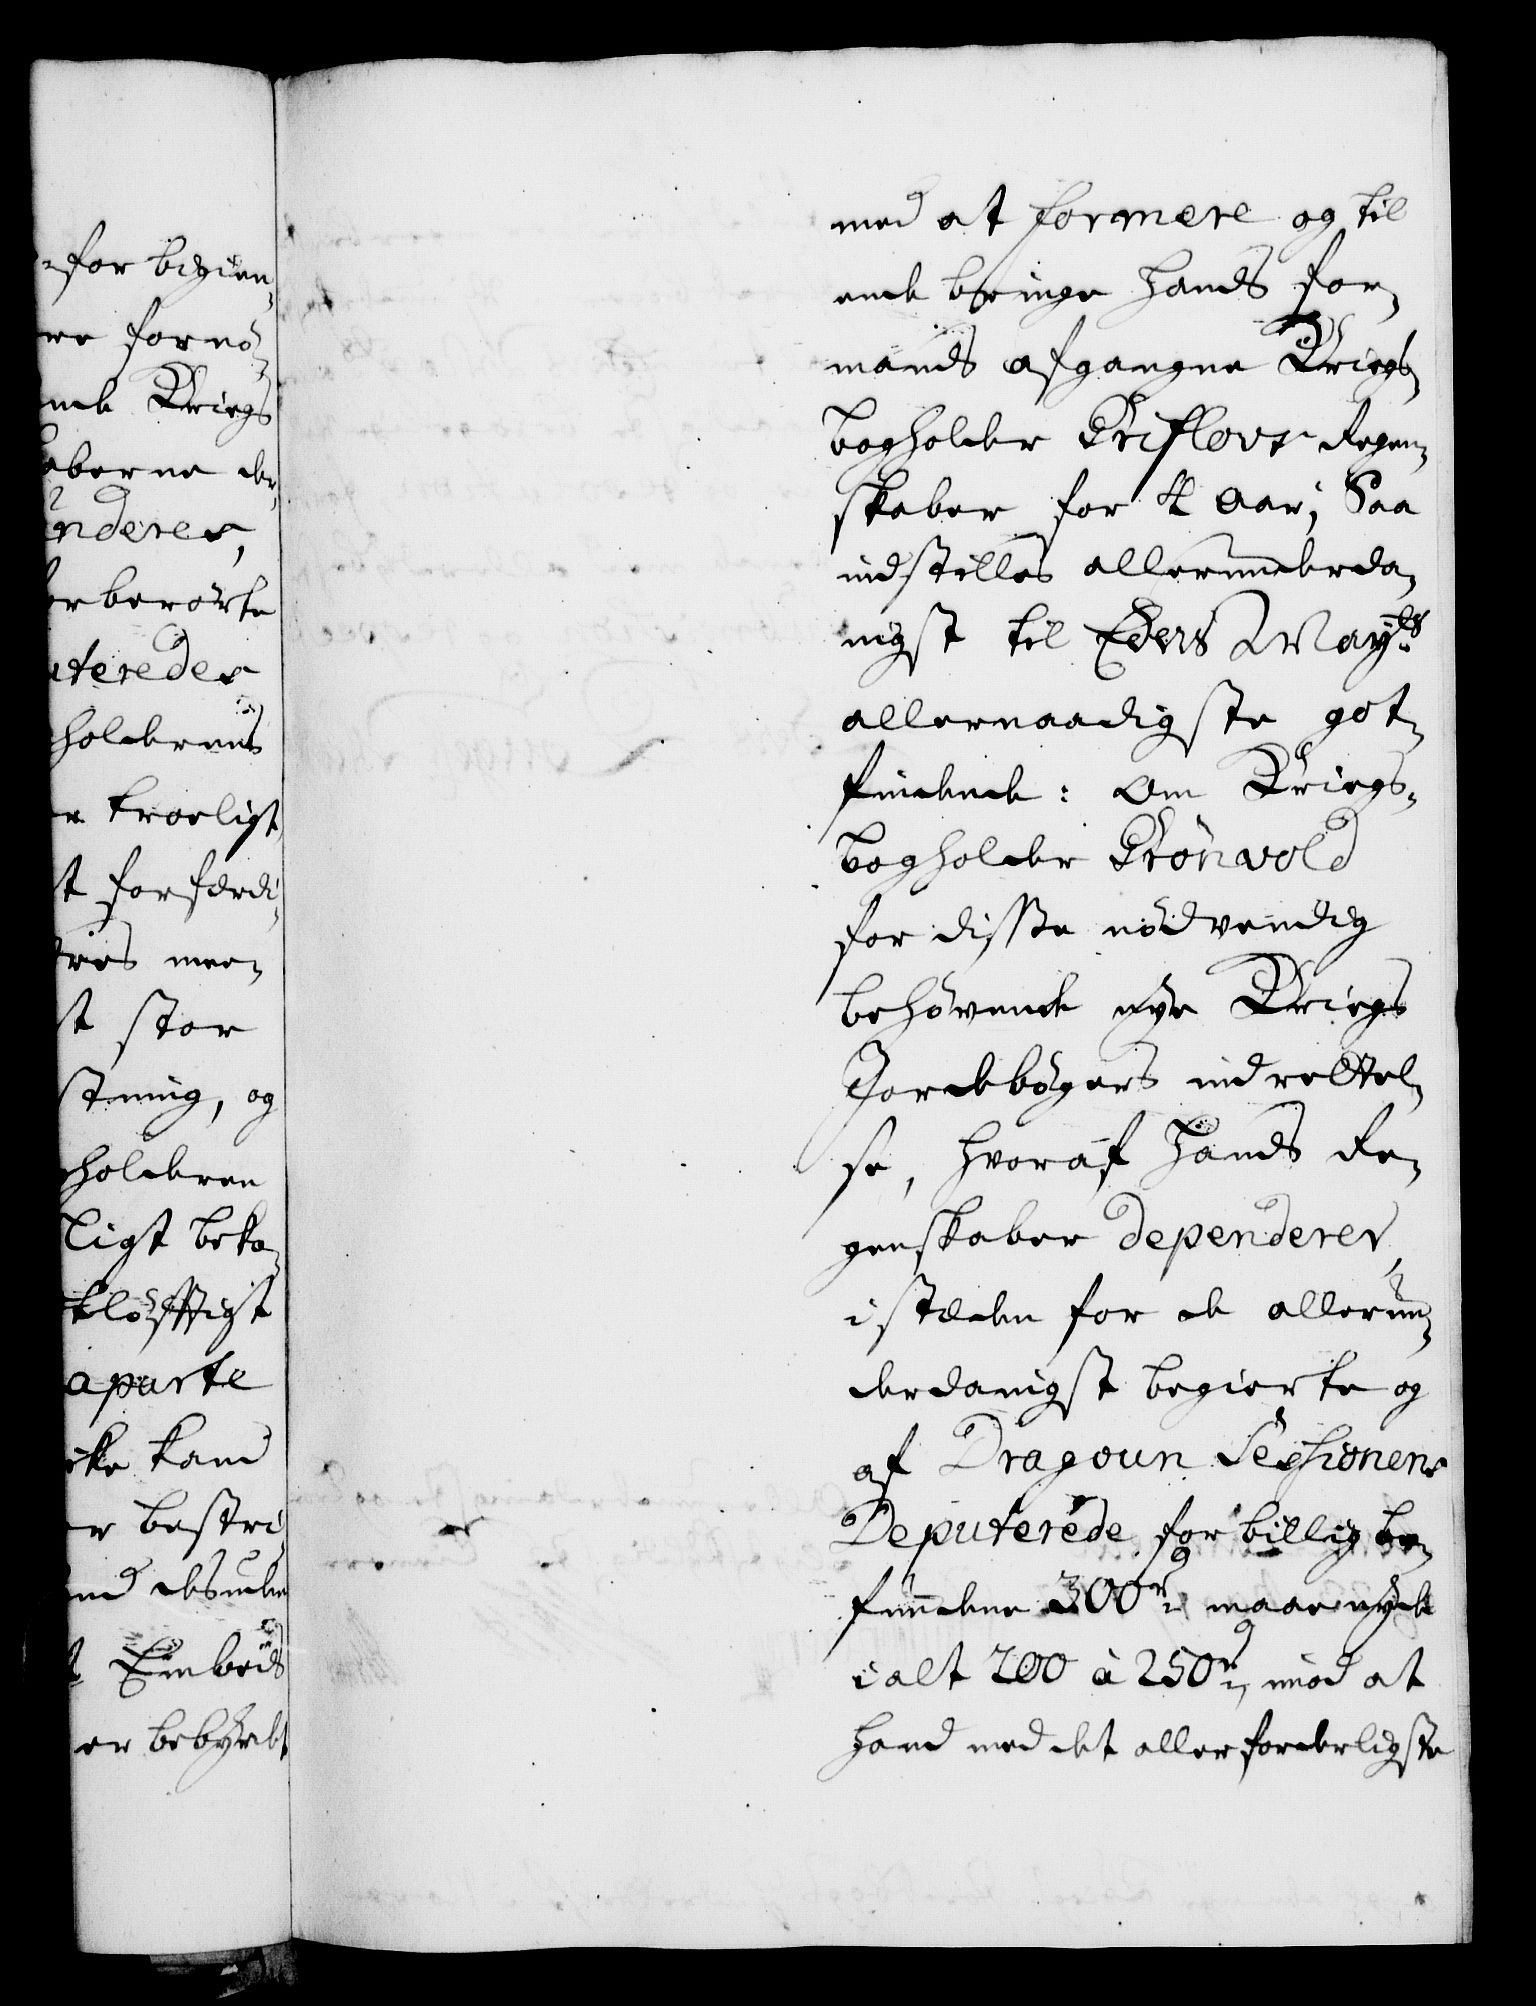 for begien-
re fornö-
nde Kriegs
aberne de-
enderes,
erberörte
uteredes
holderens
r troeligt
st forferdi-
res mee-
st stor
stning, og
holderen
ligt beko-
tlöfftigt
aparte
ike kand
er bestri-
ind desuden
t Embeds
er bebyrdt
med at formere og til
ende bringe hands for-
mands afgangne Kriegs-
bogholder Friflovs Regen-
skaber for 4 Aar; Saa
indstilles allerunderda-
nigst til Eders May:ts
allernaadigste got-
findende: Om Kriegs-
bogholder Grönvold
for disse nödvendig
behövende nye Kriegs
Jordebögers indrettel-
se, hvoraf hands Re-
genskaber dependerer,
istæden for de allerun-
derdanigst begierte og
af Dragoun Sessionens
Deputerede for billig be-
fundene 300 r:, maae nyde
i alt 200 à 250 r:, imod at
hand med det allerforderligste